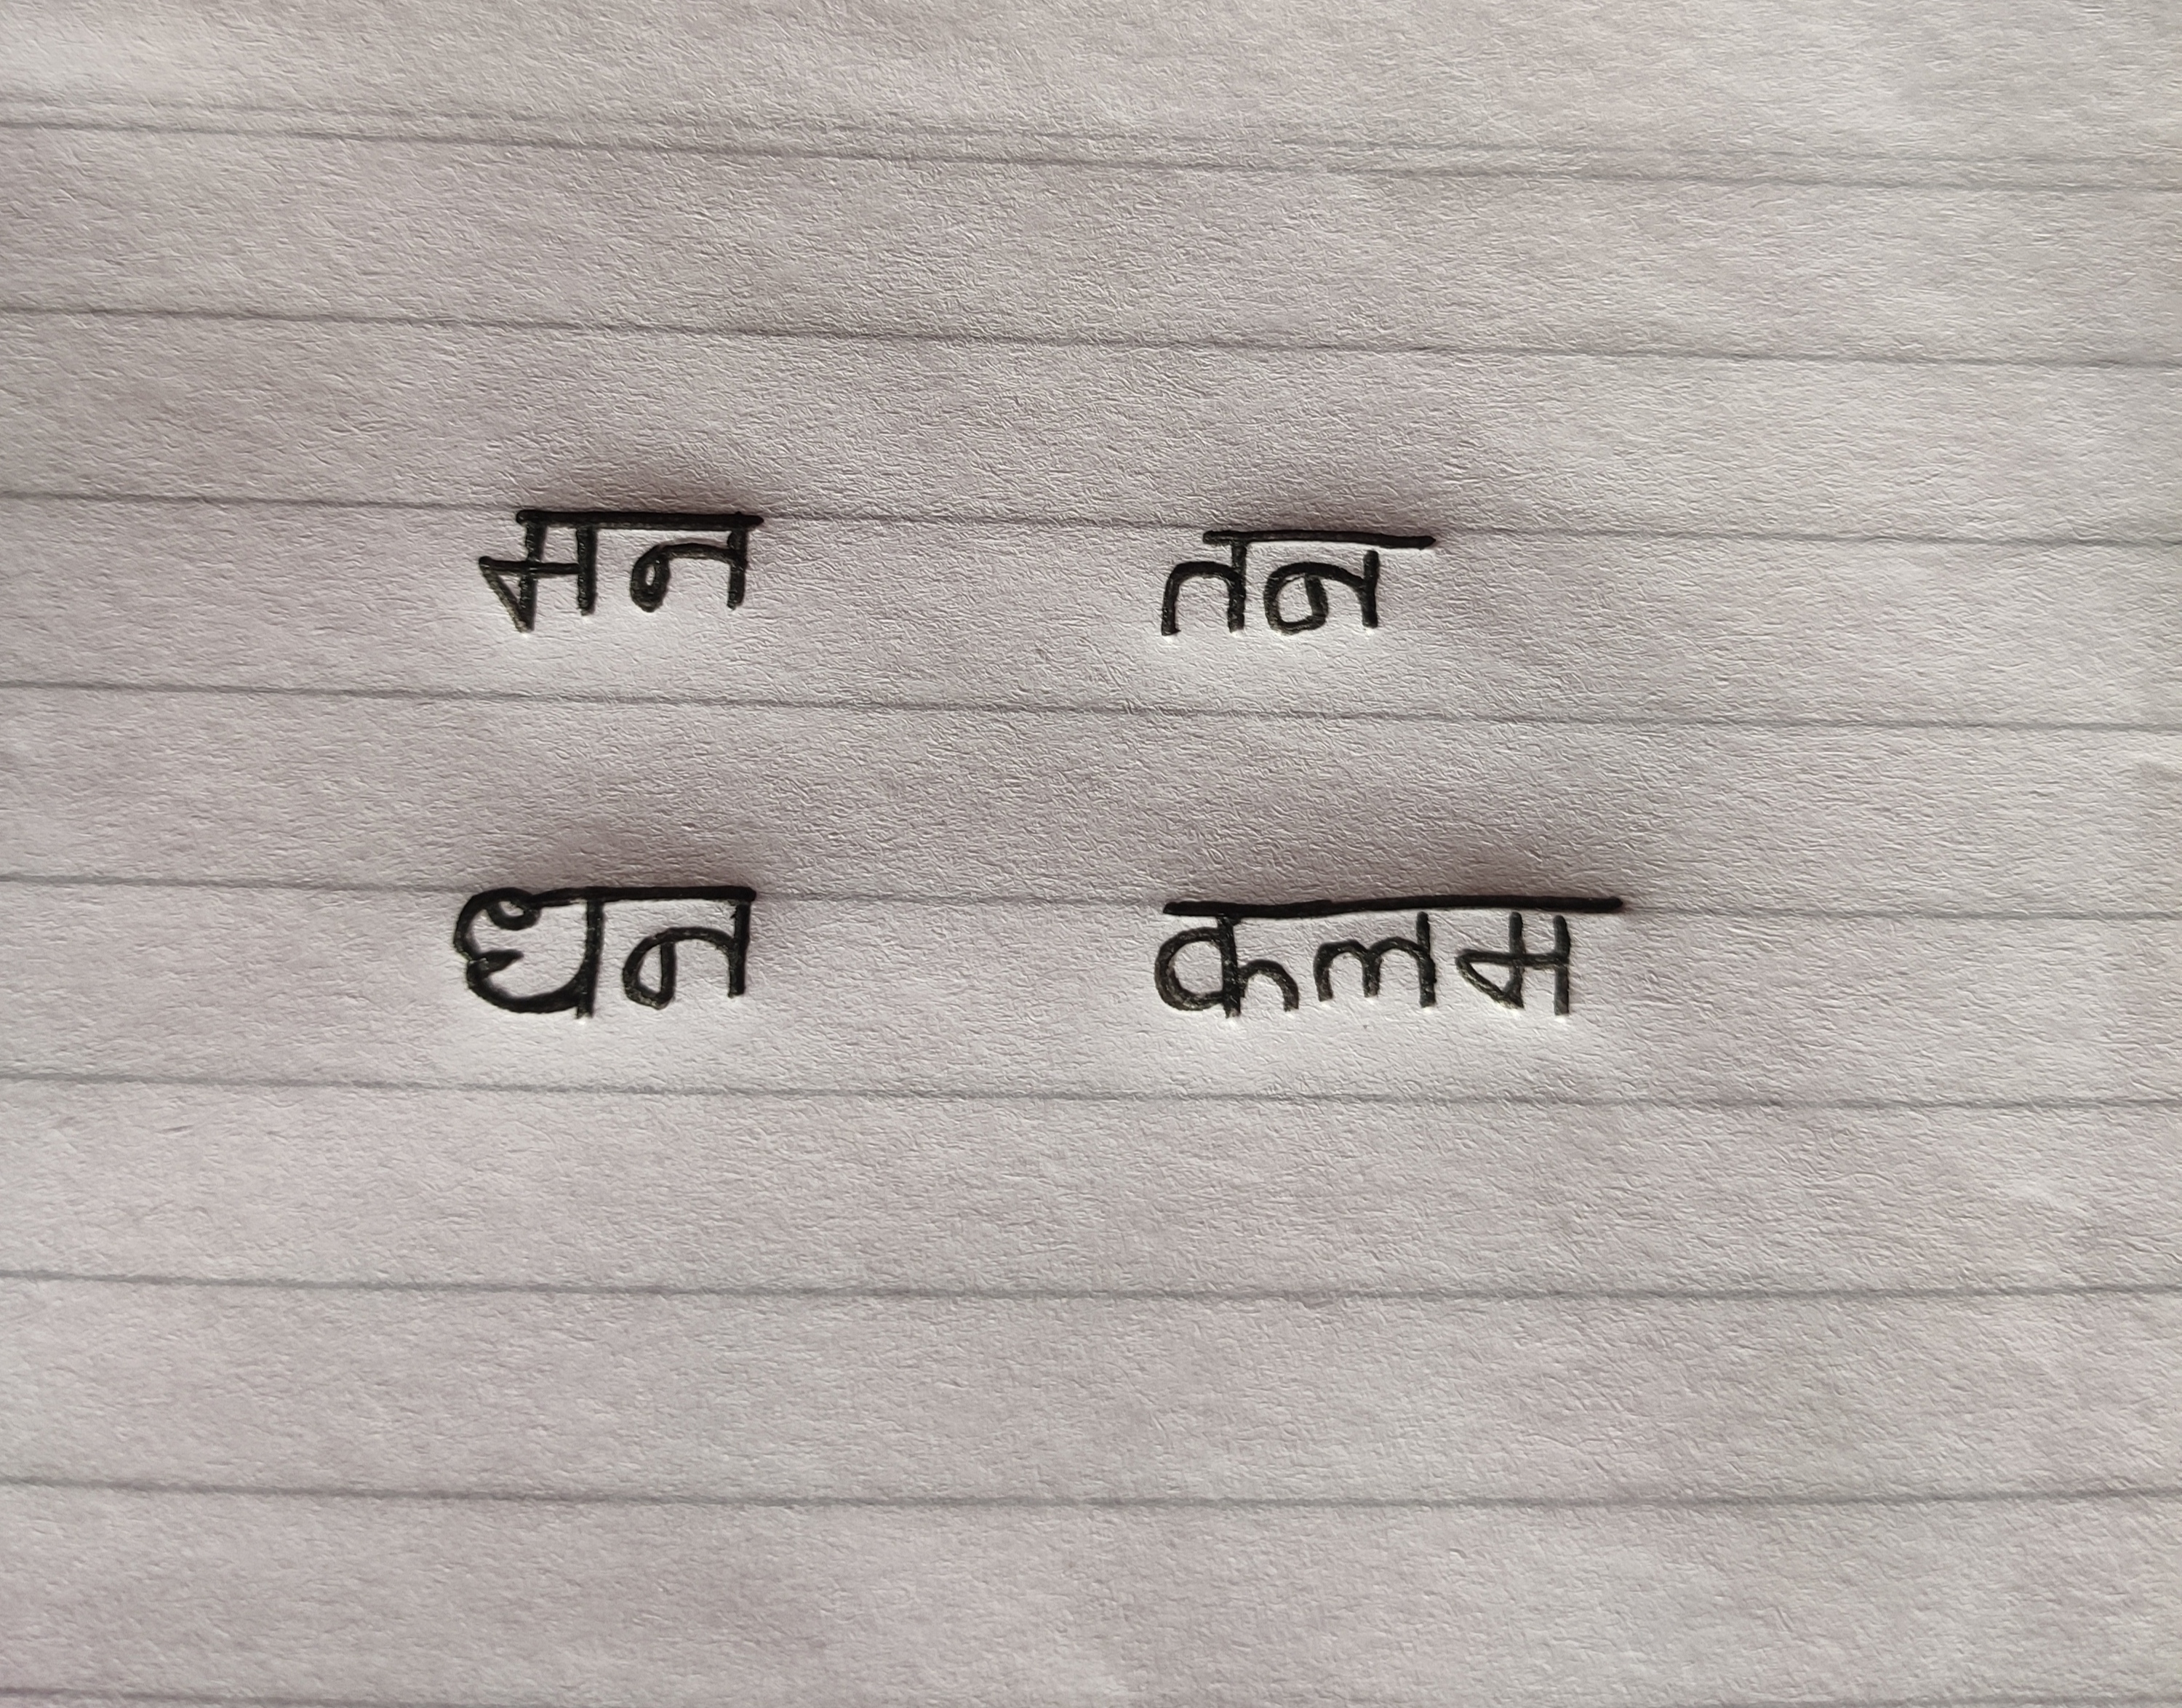 मन तन
धन कलम